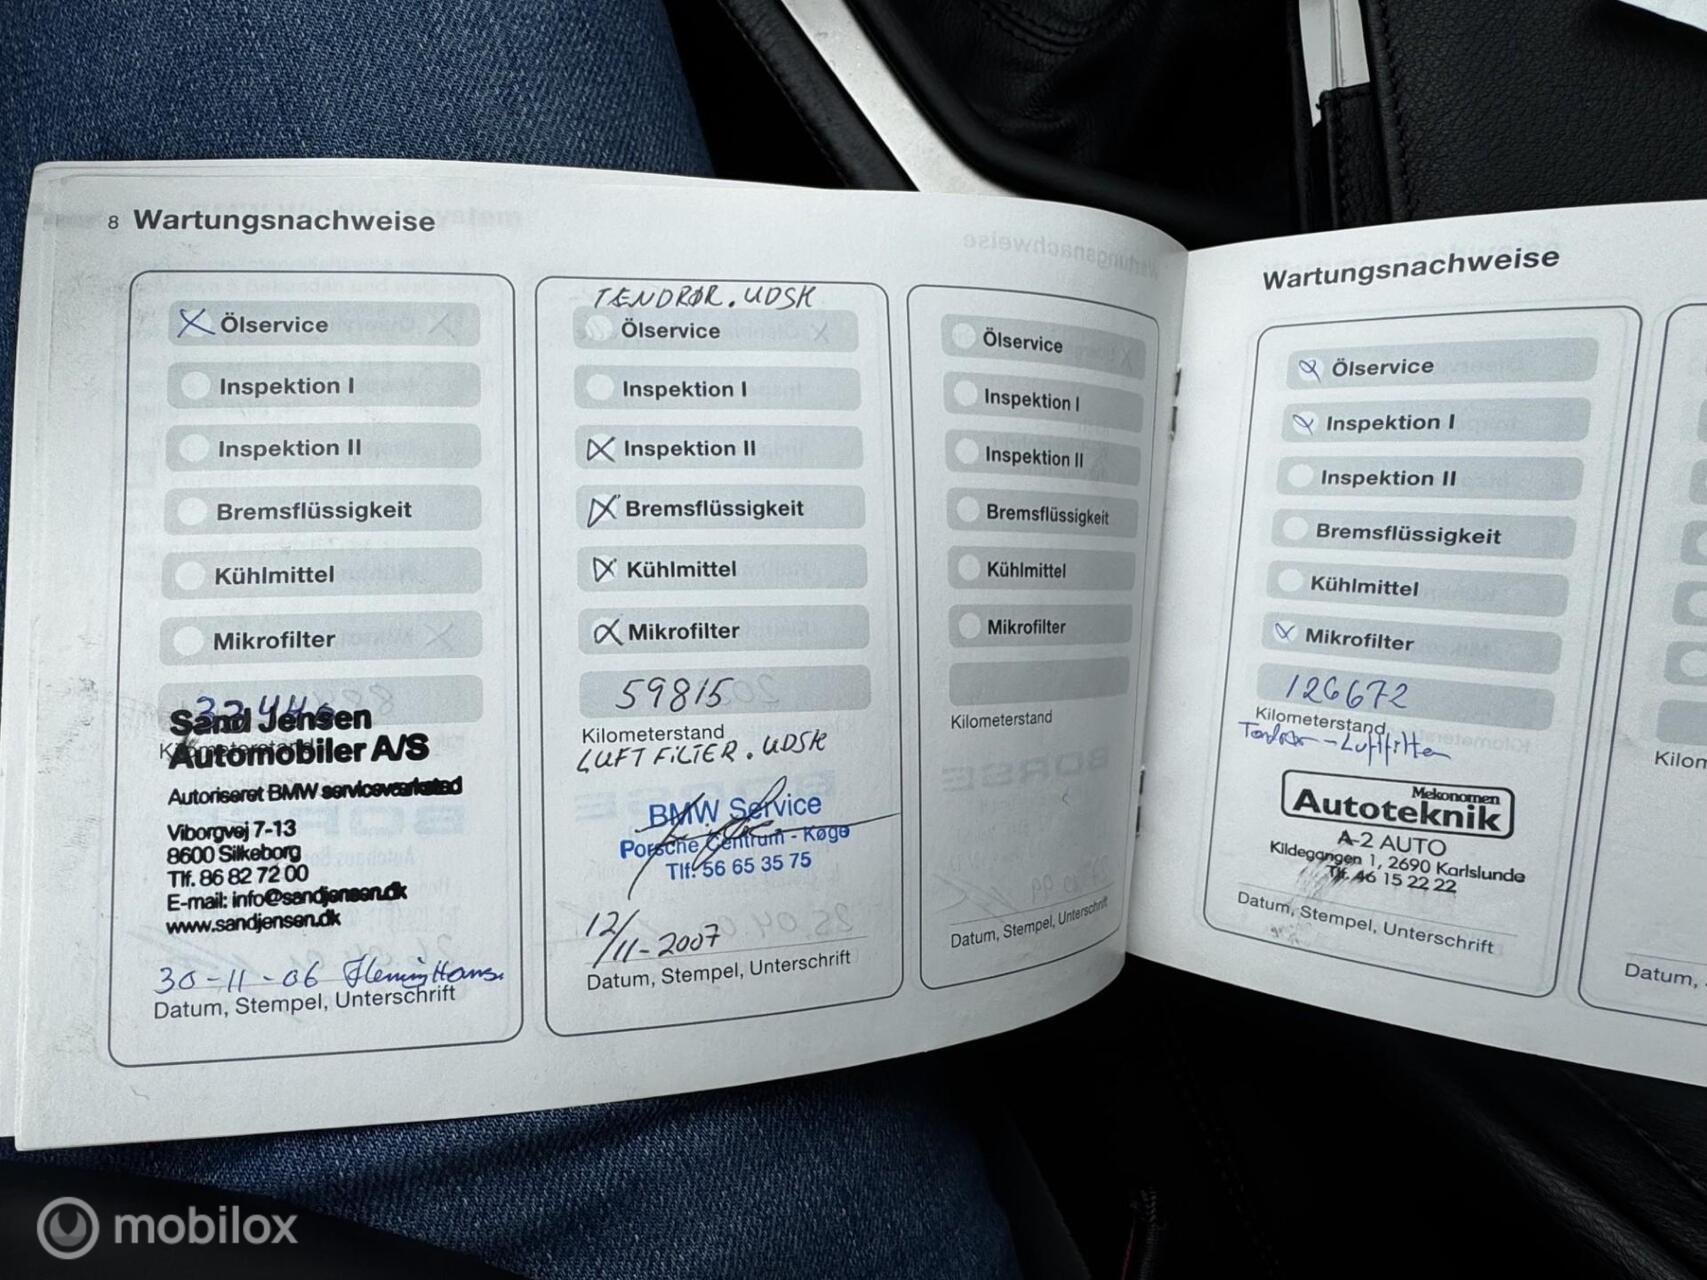 8 Wartungsnachweise
Ölservice
Inspektion I
Inspektion II
Bremsflüssigkeit
Kühlmittel
Mikrofilter
Kilometerstand
Sand Jensen
Automobiler A/S
Autoriseret BMW serviceværksted
Viborgvej 7-13
8600 Silkeborg
Tlf. 86 82 72 00
E-mail: info@sandjensen.dk
www.sandjensen.dk
30-11-06
Datum, Stempel, Unterschrift
TENDRØR. UDSK
Ölservice
Inspektion I
Inspektion II
Bremsflüssigkeit
Kühlmittel
Mikrofilter
59815
Kilometerstand
LUFTFILTER. UDSK
BMW Service
Porsche Centrum - Køge
Tlf. 56 65 35 75
12/11-2007
Datum, Stempel, Unterschrift
Ölservice
Inspektion I
Inspektion II
Bremsflüssigkeit
Kühlmittel
Mikrofilter
Kilometerstand
Datum, Stempel, Unterschrift
Wartungsnachweise
Ölservice
Inspektion I
Inspektion II
Bremsflüssigkeit
Kühlmittel
Mikrofilter
126672
Kilometerstand
Mekonomen
Autoteknik
A-2 AUTO
Kildegangen 1, 2690 Karlslunde
Tlf. 46 15 22 22
Datum, Stempel, Unterschrift
Kilom
Datum,
mobilox